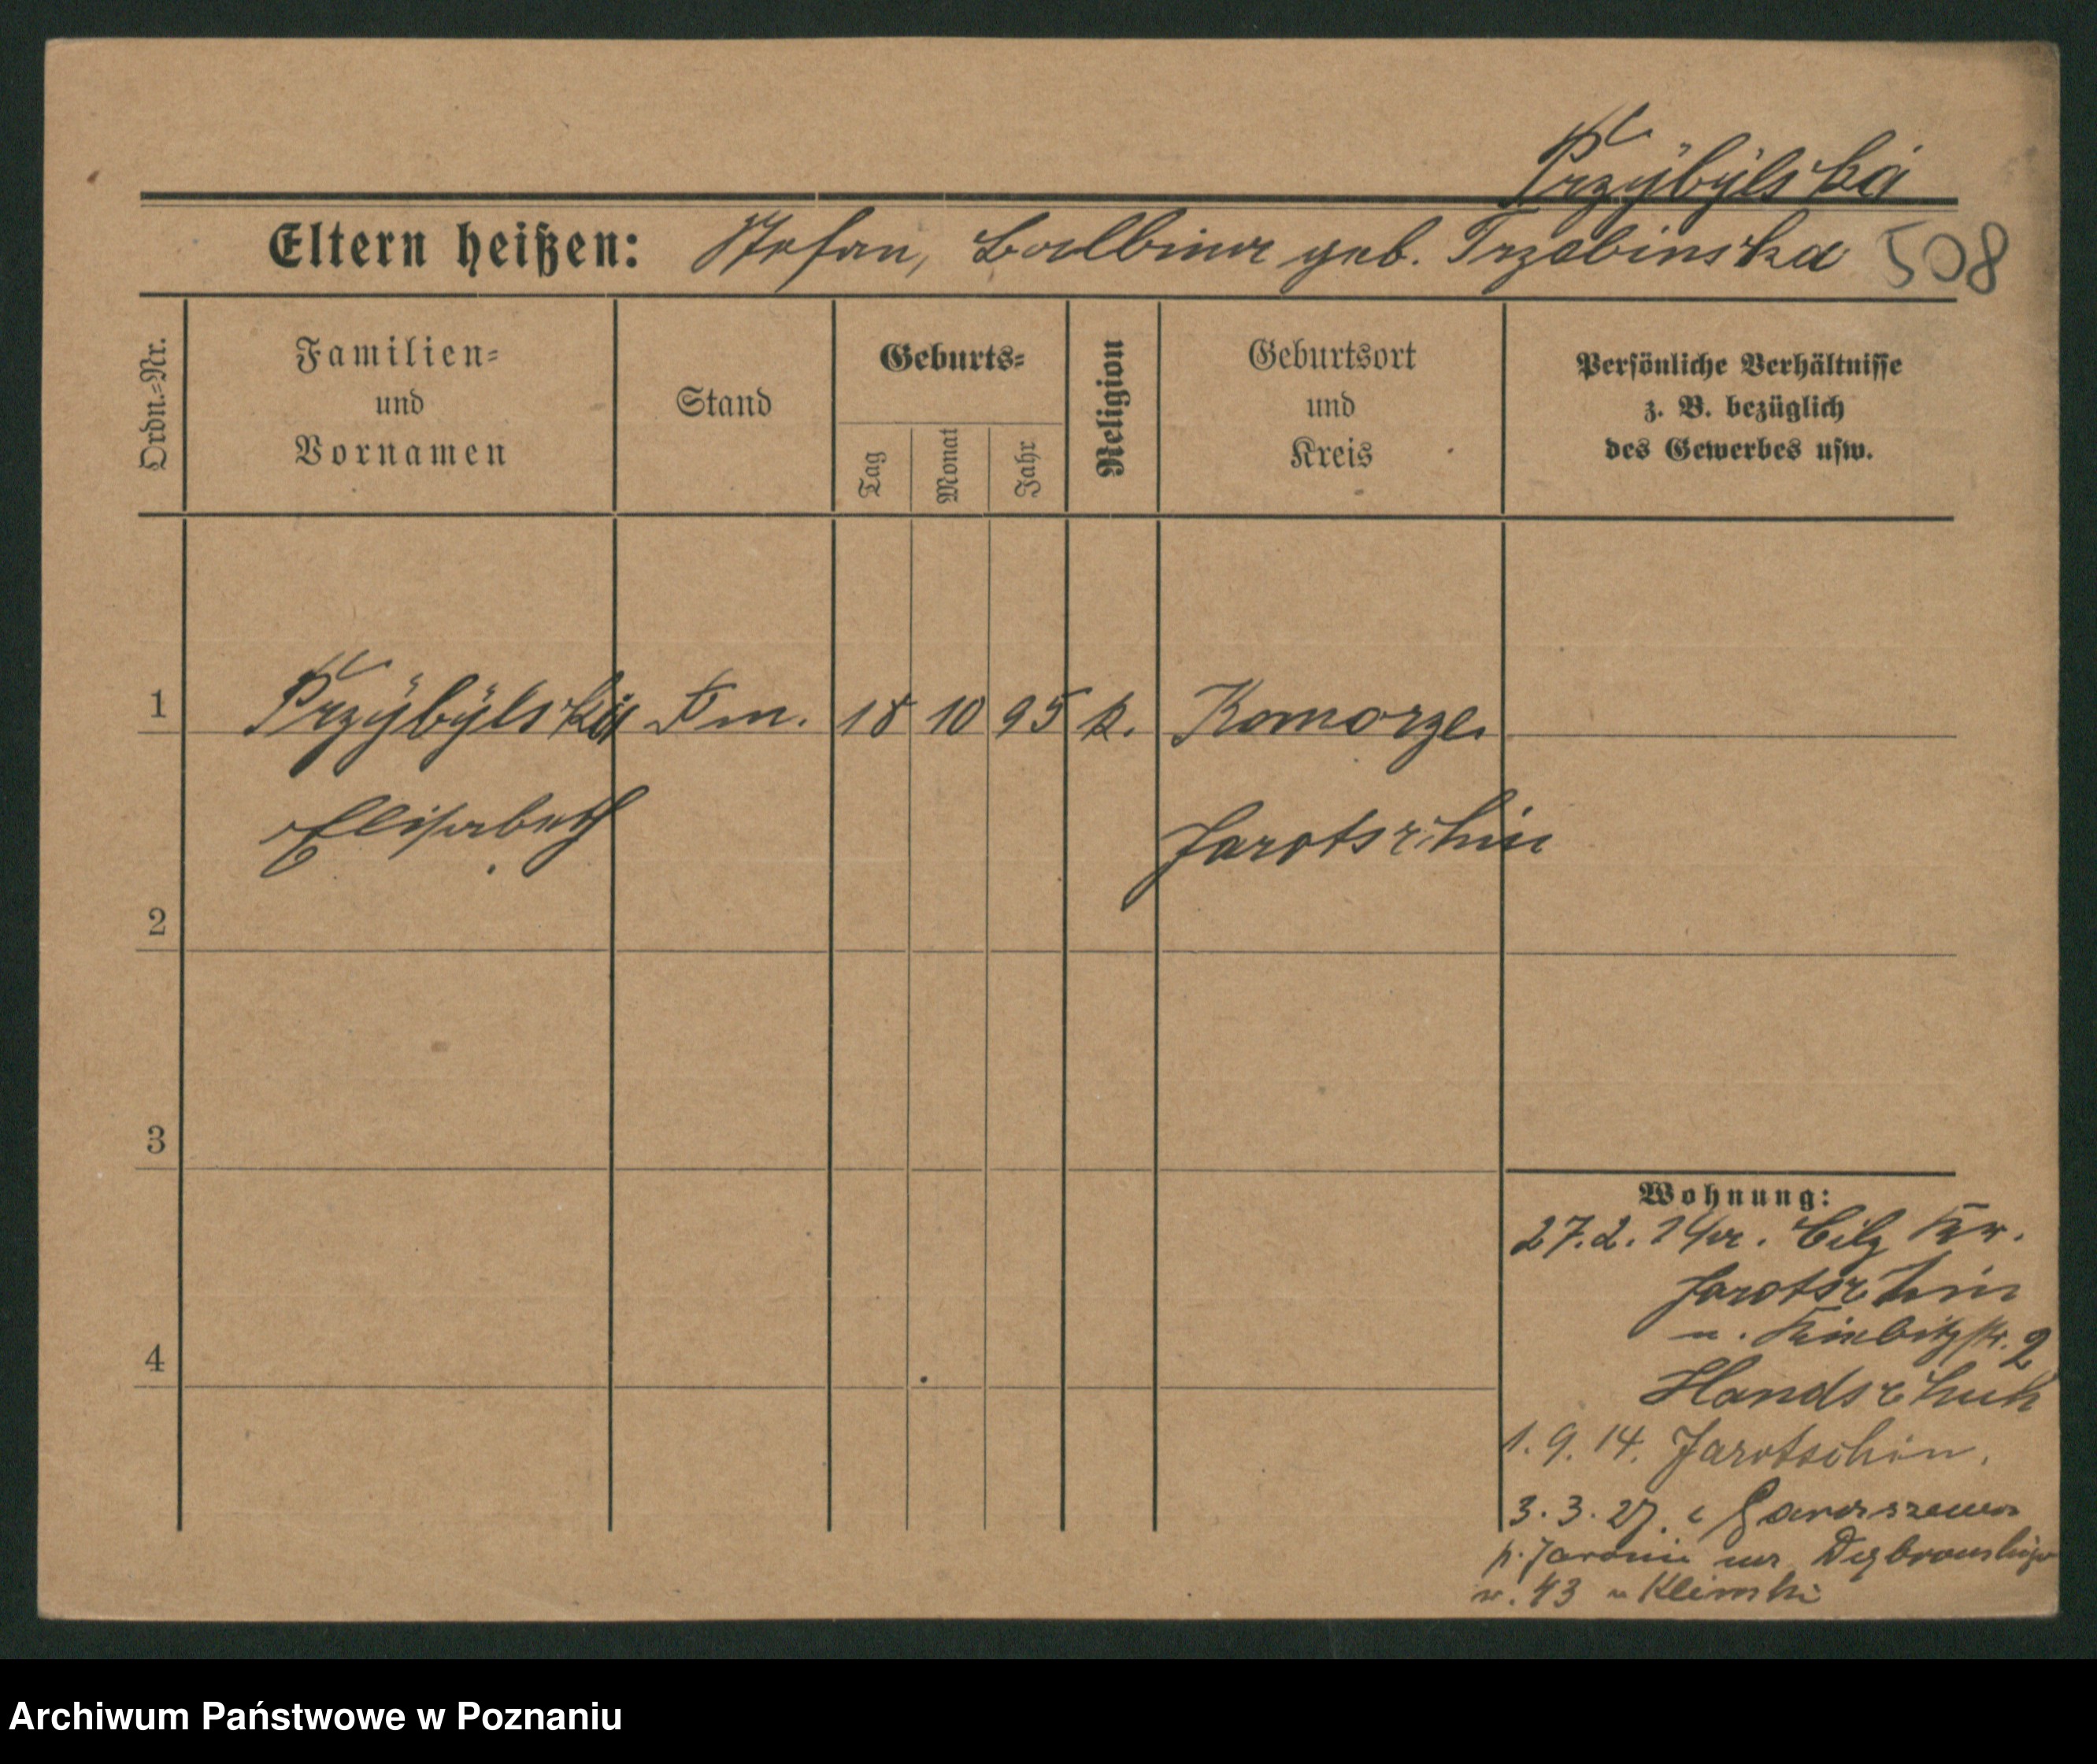 Przÿbÿlska
Eltern heißen: Stefan, Balbina geb. Trzebinska 508
Ordn.-Nr.
Familien- und Vornamen
Stand
Geburts-
Tag
Monat
Jahr
Religion
Geburtsort und Kreis
Persönliche Verhältnisse z. B. bezüglich des Gewerbes usw.
1 Przÿbÿlska 18 10 95 k. Komorze
Elisabeth Jarotschin
2
3
4
Wohnung:
27.2.14 Kr.
Jarotschin
2
Handschuh
1. 9. 14. Jarotschin.
3. 3. 27.
43 Klimski
Archiwum Państwowe w Poznaniu